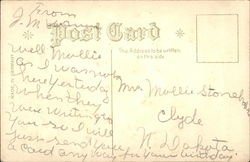 From
J. M.
Post Card
The Address to be written
on this side
Well Mollie
as I was not
here yesterday
when they
were writing
you so I will
just send you
a card any way for your birthday
Mrs. Mollie
Clyde
N. Dakota